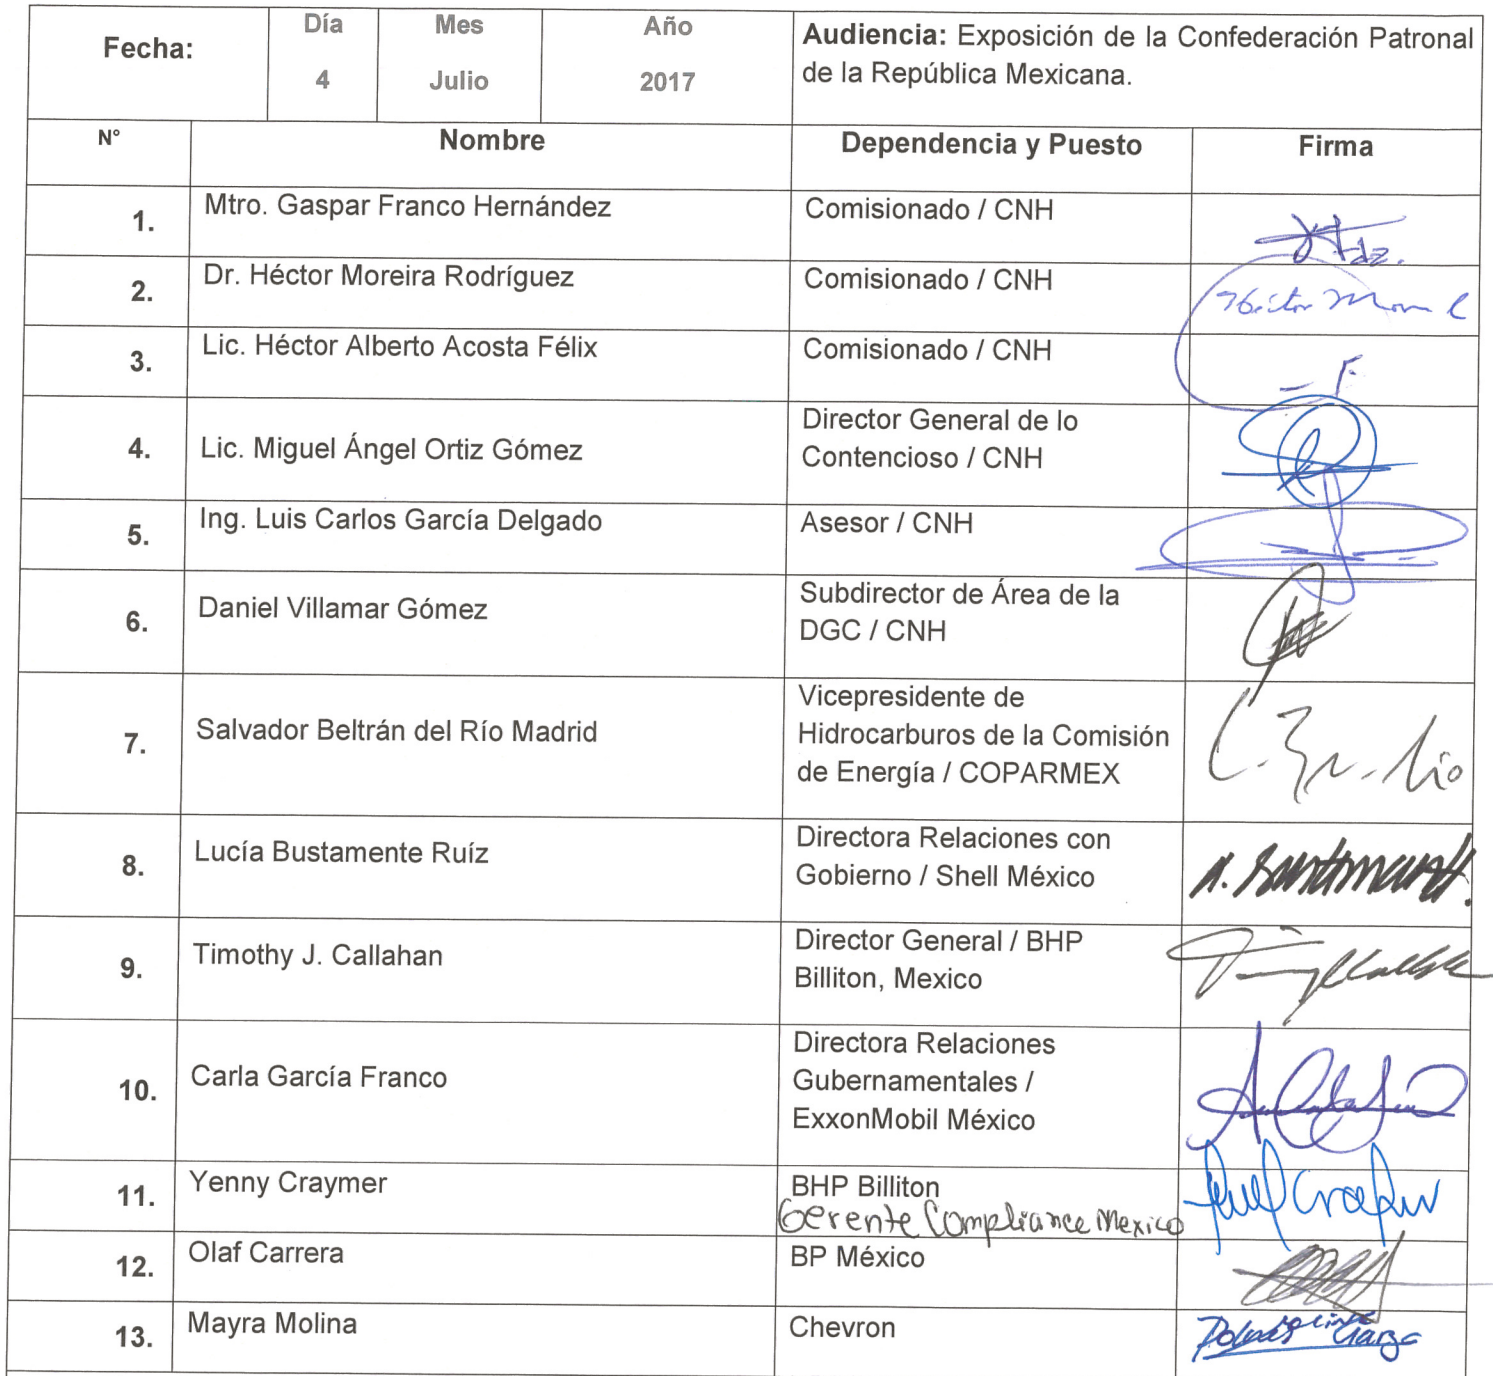 Fecha:
Día Mes Año
4 Julio 2017
Audiencia: Exposición de la Confederación Patronal
de la República Mexicana.
N° Nombre Dependencia y Puesto Firma
1. Mtro. Gaspar Franco Hernández Comisionado / CNH
2. Dr. Héctor Moreira Rodríguez Comisionado / CNH
3. Lic. Héctor Alberto Acosta Félix Comisionado / CNH
4. Lic. Miguel Ángel Ortiz Gómez Director General de lo
Contencioso / CNH
5. Ing. Luis Carlos García Delgado Asesor / CNH
6. Daniel Villamar Gómez Subdirector de Área de la
DGC / CNH
7. Salvador Beltrán del Río Madrid Vicepresidente de
Hidrocarburos de la Comisión
de Energía / COPARMEX
8. Lucía Bustamente Ruíz Directora Relaciones con
Gobierno / Shell México
9. Timothy J. Callahan Director General / BHP
Billiton, Mexico
10. Carla García Franco Directora Relaciones
Gubernamentales /
ExxonMobil México
11. Yenny Craymer BHP Billiton
Gerente Compliance Mexico
12. Olaf Carrera BP México
13. Mayra Molina Chevron